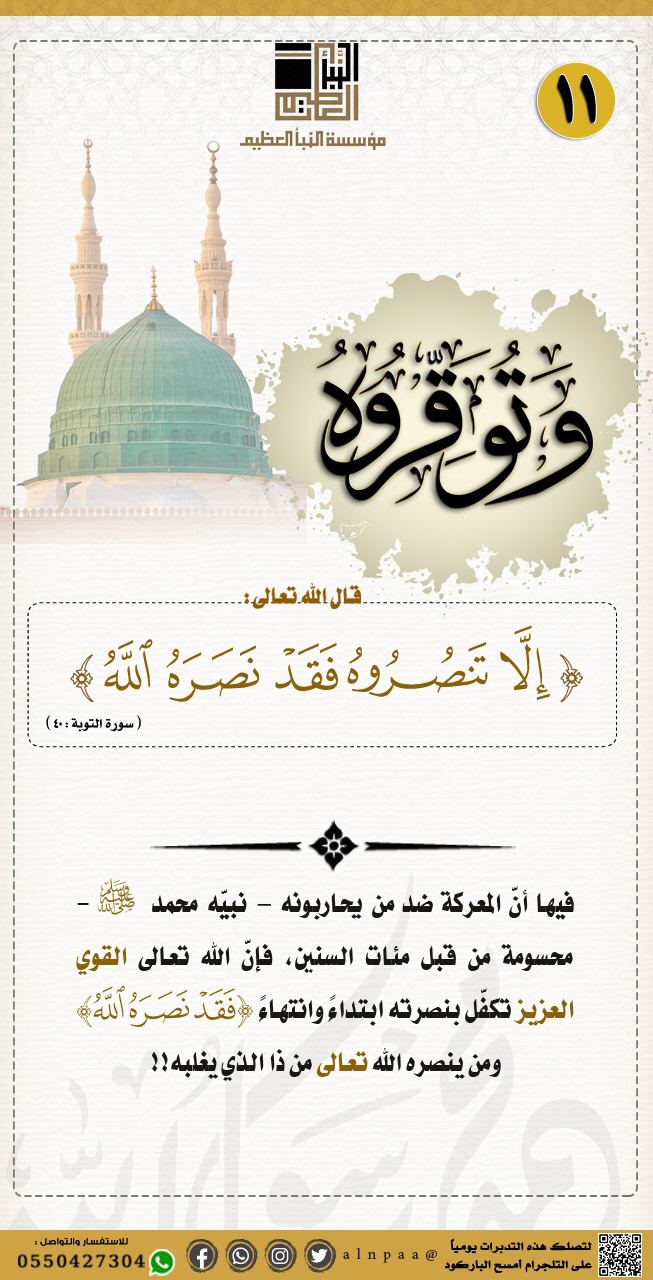 مؤسسة النبأ العظيم
١١
وَتُوَقِّرُوهُ
قال الله تعالى:
﴿ إِلَّا تَنصُرُوهُ فَقَدْ نَصَرَهُ ٱللَّهُ ﴾
( سورة التوبة : ٤٠ )
فيها أنّ المعركة ضد من يحاربونه – نبيّه محمد ﷺ –
محسومة من قبل مئات السنين، فإنّ الله تعالى القوي
العزيز تكفّل بنصرته ابتداءً وانتهاءً ﴿فَقَدْ نَصَرَهُ ٱللَّهُ﴾
ومن ينصره الله تعالى من ذا الذي يغلبه!!
لتصلك هذه التدبرات يومياً
على التلجرام امسح الباركود
@alnpaa
للاستفسار والتواصل :
0550427304